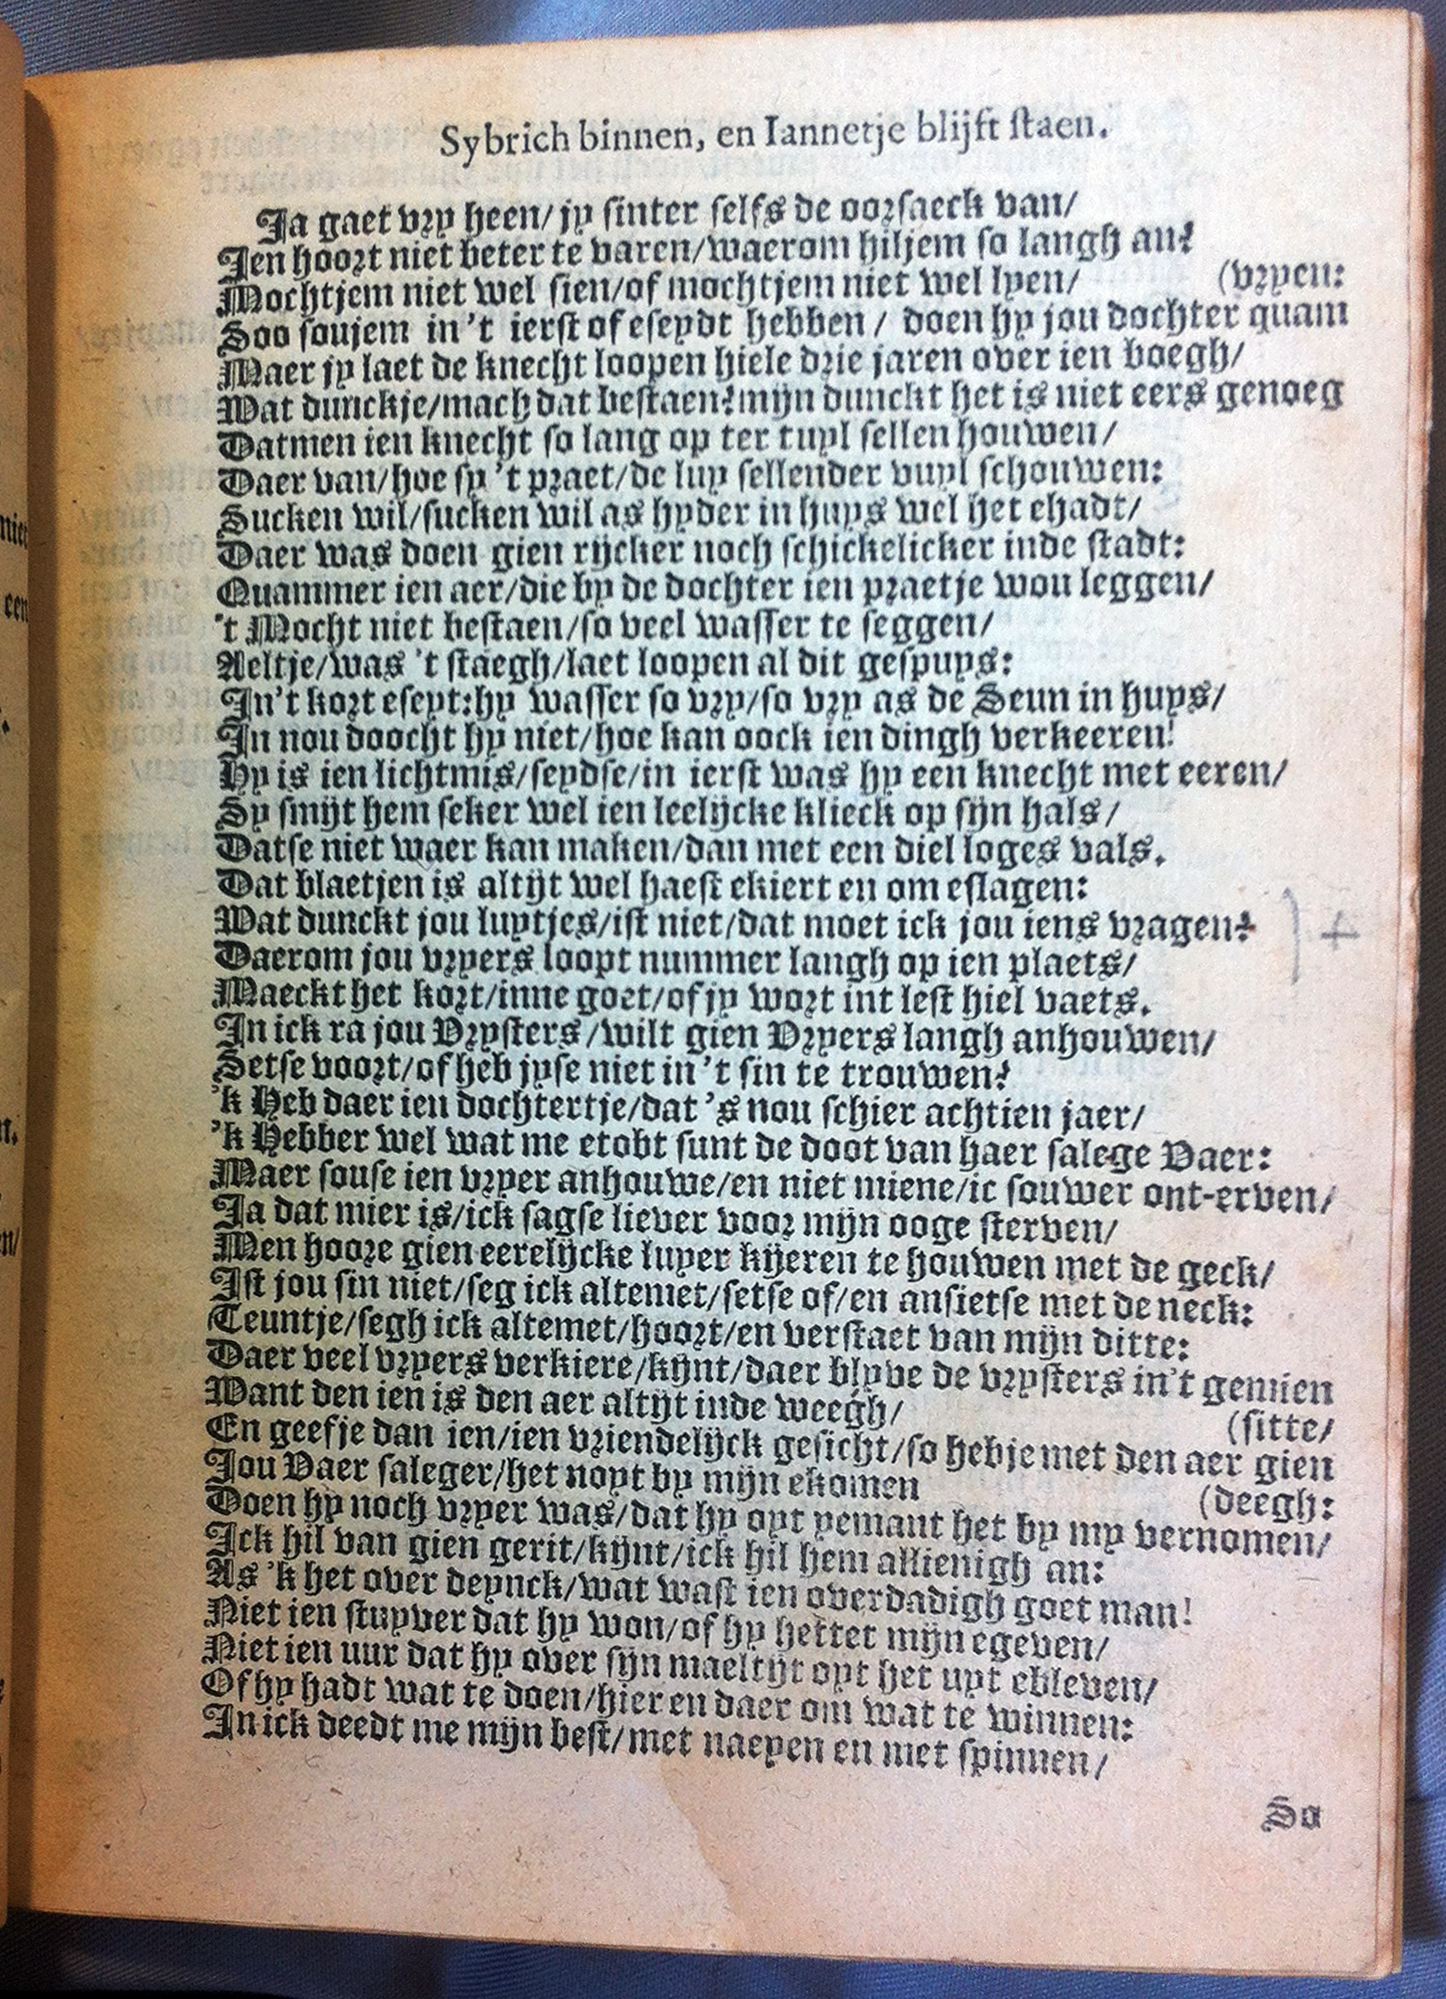 Sybrich binnen, en Iannetje blijft staen.
Ja gaet vry heen/ jy sinter selfs de oorsaeck van/
Jen hoort niet beter te varen/waerom hiljem so langh an?
Mochtjem niet wel sien/of mochtjem niet wel lyen/ (vryen:
Soo soujem in 't ierst of eseydt hebben / doen hy jou dochter quam
Maer jy laet de knecht loopen hiele drie jaren over ien boegh/
Wat dunckje/mach dat bestaen? mijn dunckt het is niet eers genoeg
Datmen ien knecht so lang op ter tuyl sellen houwen/
Daer van/hoe sy 't praet/de luy sellender vuyl schouwen:
Sucken wil/sucken wil as hyder in huys wel het ehadt/
Daer was doen gien rijcker noch schickelicker inde stadt:
Quammer ien aer/die by de dochter ien praetje wou leggen/
't Mocht niet bestaen/so veel wasser te seggen/
Aeltje/was 't staegh/laet loopen al dit gespuys:
In't kort eseyt:hy wasser so vry/so vry as de Seun in huys/
In nou doocht hy niet/hoe kan oock ien dingh verkeeren!
Hy is ien lichtmis/seydse/in ierst was hy een knecht met eeren/
Sy smijt hem seker wel ien leelijcke klieck op sijn hals/
Datse niet waer kan maken/dan met een diel loges vals.
Dat blaetjen is altijt wel haest ekiert en om eslagen:
Wat dunckt jou luytjes/ist niet/dat moet ick jou iens vragen? 4
Daerom jou vryers loopt nummer langh op ien plaets/
Maeckt het kort/inne goet/of jy wort int lest hiel vaets.
In ick ra jou Vrysters/wilt gien Vryers langh anhouwen/
Setse voort/of heb jyse niet in 't sin te trouwen?
'k Heb daer ien dochtertje/dat 's nou schier achtien jaer/
'k Hebber wel wat me etobt sunt de doot van haer salege Vaer:
Maer souse ien vryer anhouwe/en niet miene/ic souwer ont-erven/
Ja dat mier is/ick sagse liever voor mijn ooge sterven/
Men hoore gien eerelijcke luyer kijeren te houwen met de geck/
Ist jou sin niet/seg ick altemet/setse of/en ansietse met de neck:
Teuntje/segh ick altemet/hoort/en verstaet van mijn ditte:
Daer veel vryers verkiere/kijnt/daer blyve de vrysters in't gemien
Want den ien is den aer altijt inde weegh/ (sitte/
En geefje dan ien/ien vriendelijck gesicht/so hebje met den aer gien
Jou Vaer saleger/het noyt by mijn ekomen (deegh:
Doen hy noch vryer was/dat hy oyt yemant het by my vernomen/
Ick hil van gien gerit/kijnt/ick hil hem allienigh an:
As 'k het over deynck/wat wast ien overdadigh goet man!
Niet ien stuyver dat hy won/of hy hettet mijn egeven/
Niet ien uur dat hy over sijn maeltijt oyt het uyt ebleven/
Of hy hadt wat te doen/hier en daer om wat te winnen:
In ick deedt me mijn best/met naeyen en met spinnen/
So